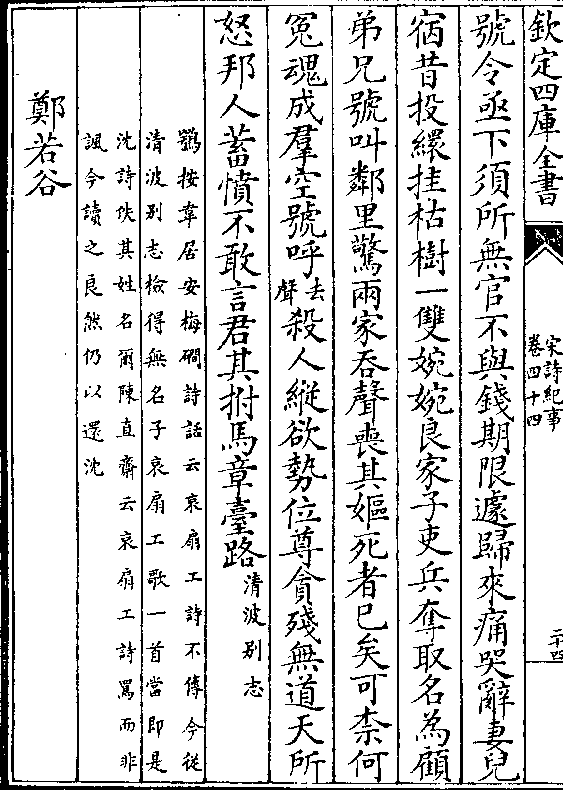 欽定四庫全書
宋詩紀事
卷四十四
二十四
號令亟下須所無官不與錢期限遽歸來痛哭辭妻兒
宿昔投繯挂枯樹一雙婉婉良家子吏兵奪取名為顧
弟兄號叫鄰里驚兩家吞聲喪其嫗死者已矣可柰何
冤魂成羣空號呼去聲殺人縱欲勢位尊貪殘無道天所
怒邦人蓄憤不敢言君其拊馬章臺路清波别志
鶚按韋居安梅磵詩話云哀扇工詩不傳今從
清波别志檢得無名子哀扇工歌一首當即是
沈詩佚其姓名爾陳直齋云哀扇工詩罵而非
諷今讀之良然仍以還沈
鄭若谷